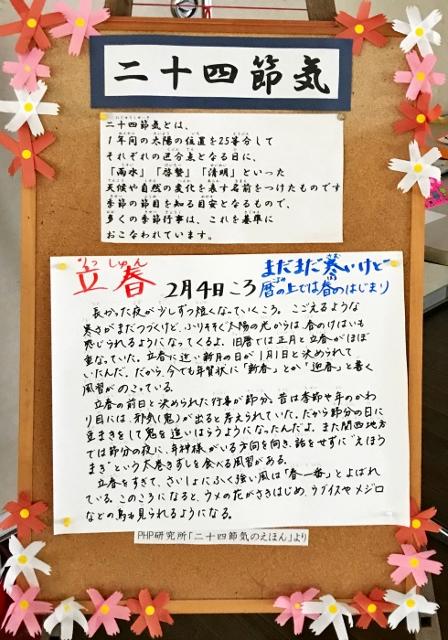 二十四節気
二十四節気とは、
1年間の太陽の位置を25等分して
それぞれの区分点となる日に、
「雨水」「啓蟄」「清明」といった
天候や自然の変化を表す名前をつけたものです
季節の節目を知る目安となるもので、
多くの季節行事は、これを基準に
おこなわれています。
りっしゅん
立春
2月4日ころ
まだまだ寒いけど
暦の上では春のはじまり
長かった夜が少しずつ短くなっていくころ。こごえるような
寒さがまだつづくけど、ふりそそぐ太陽の光からは、春のけはいも
感じられるようになってくるよ。旧暦では正月と立春がほぼ
重なっていた。立春に近い新月の日が1月1日と決められて
いたんだ。だから、今でも年賀状に「新春」とか「迎春」と書く
風習がのこっている。
立春の前日と決められた行事が節分。昔は季節や年のかわ
り目には、邪気(鬼)が出ると考えられていた。だから節分の日に
豆まきをして鬼を追いはらうようになったんだよ。また関西地方
では節分の夜に、年神様がいる方向を向き、話をせずに"えほう
まき"という太巻きずしを食べる風習がある。
立春をすぎて、さいしょにふく強い風は「春一番」とよばれ
ている。このころになると、ウメの花がさきはじめ、ウグイスやメジロ
などの鳥も見られるようになる。
PHP研究所「二十四節気のえほん」より